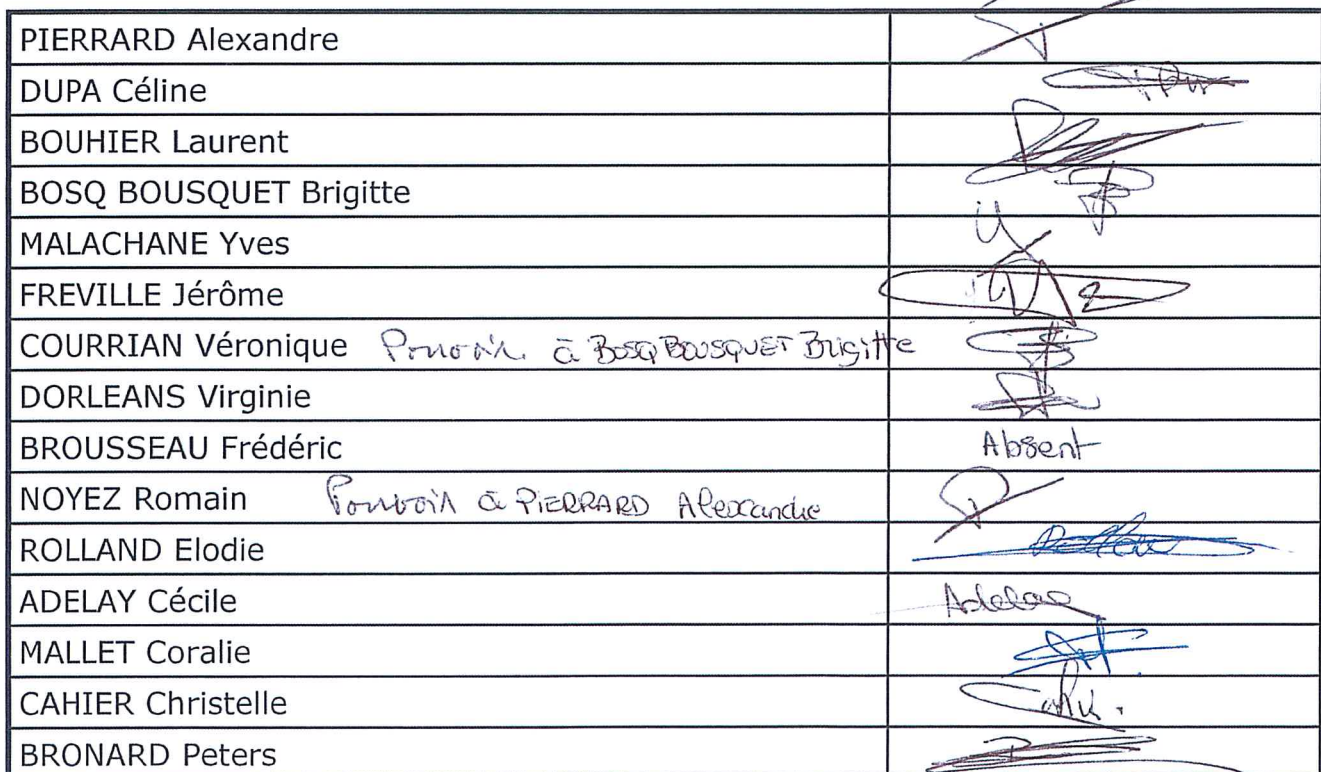 PIERRARD Alexandre
DUPA Céline
BOUHIER Laurent
BOSQ BOUSQUET Brigitte
MALACHANE Yves
FREVILLE Jérôme
COURRIAN Véronique Pouvoir à BOSQ BOUSQUET Brigitte
DORLEANS Virginie
BROUSSEAU Frédéric Absent
NOYEZ Romain Pouvoir à PIERRARD Alexandre
ROLLAND Elodie
ADELAY Cécile
MALLET Coralie
CAHIER Christelle
BRONARD Peters